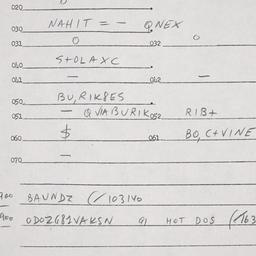 020
030 NAHIT = - QNEX
031 0 032 0
060 S+OLAXC
061 — 062 —
050 BU,RIK8ES
051 — QVIABURIK 052 RIB+
060 $ 061 BO,C+VINE
070 —
900 BAUNDZ (/103140
900 ODOZG81VAKSN GI HOT DOS (/163